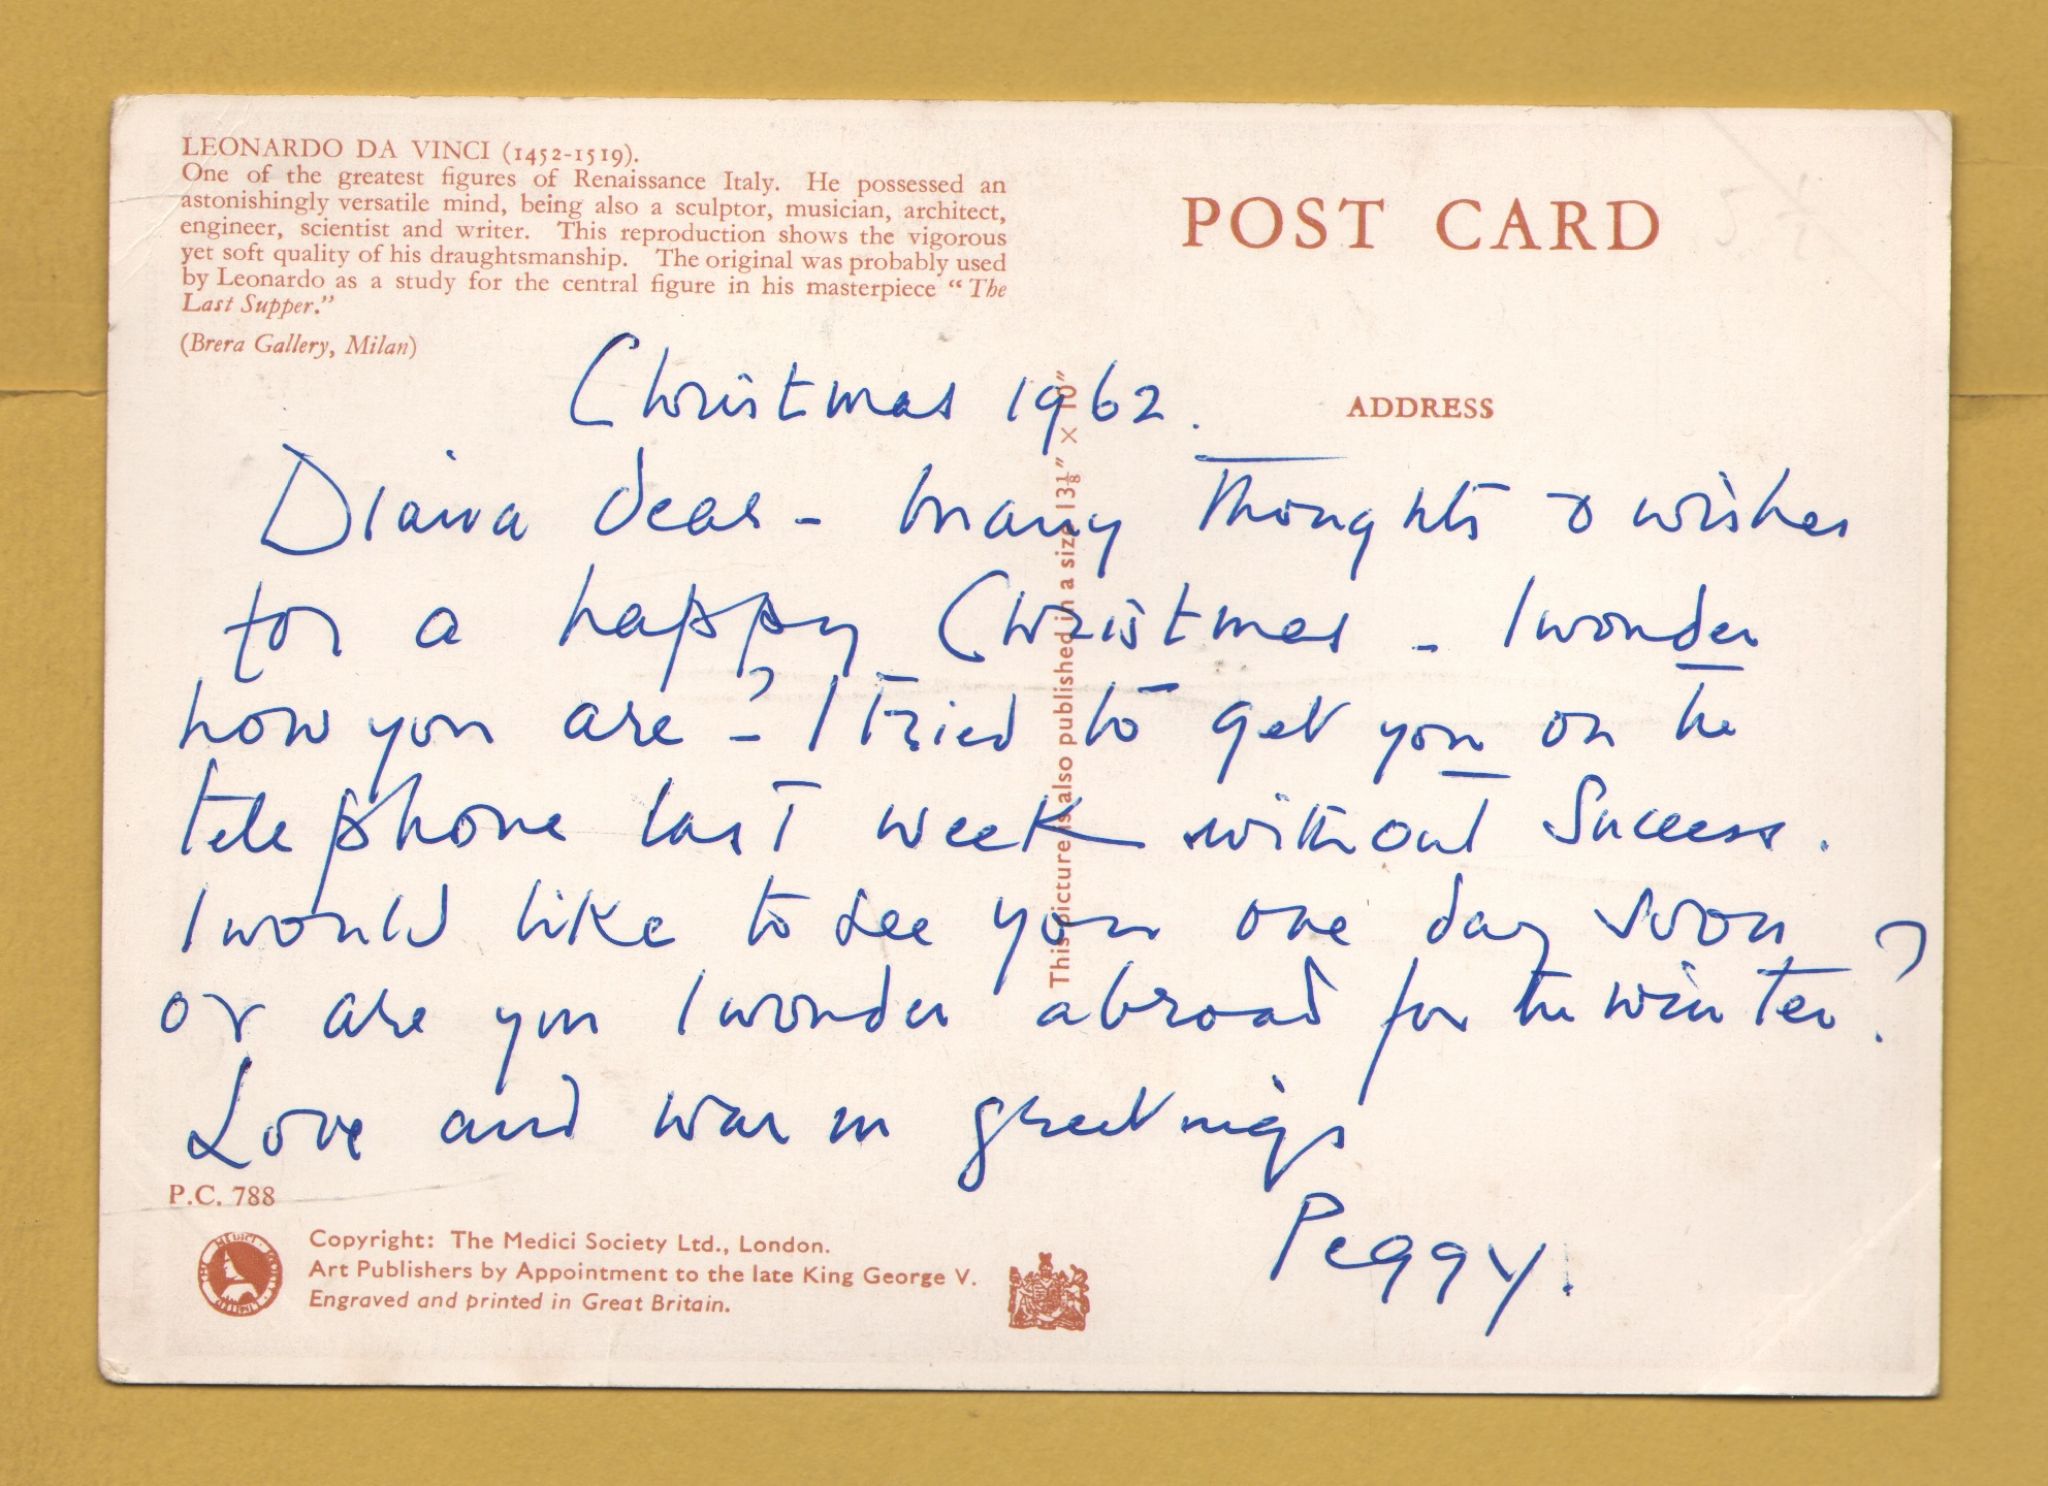 LEONARDO DA VINCI (1452-1519).
One of the greatest figures of Renaissance Italy. He possessed an
astonishingly versatile mind, being also a sculptor, musician, architect,
engineer, scientist and writer. This reproduction shows the vigorous
yet soft quality of his draughtsmanship. The original was probably used
by Leonardo as a study for the central figure in his masterpiece "The
Last Supper."
(Brera Gallery, Milan)
POST CARD
ADDRESS
This picture is also published in a size 13⅛" × 10"
Christmas 1962.
Diana dear - many thoughts & wishes
for a happy Christmas - I wonder
how you are? - I tried to get you on the
telephone last week without success.
I would like to see you one day soon
or are you I wonder abroad for the winter?
Love and warm greetings
Peggy.
P.C. 788
THE MEDICI SOCIETY
Copyright: The Medici Society Ltd., London.
Art Publishers by Appointment to the late King George V.
Engraved and printed in Great Britain.